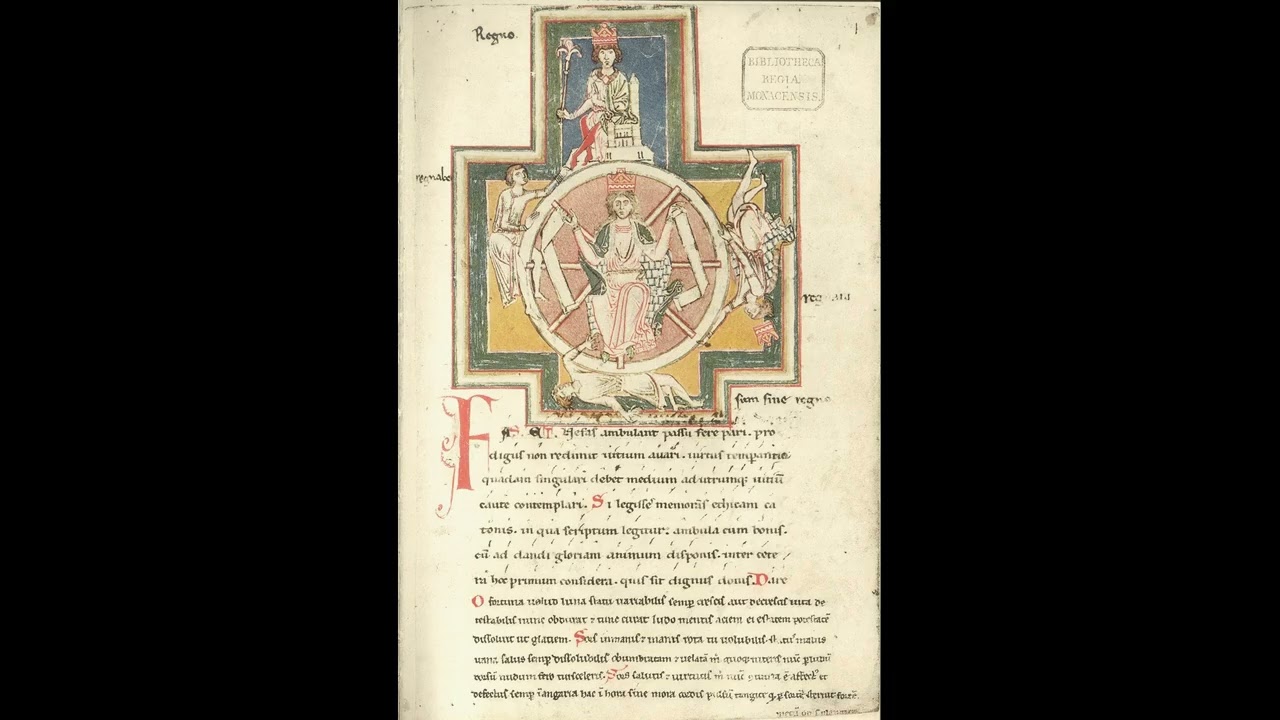 Regno.
BIBLIOTHECA
REGIA
MONACENSIS.
regnabo
sum sine regno
FAS ET Nefas ambulant passu fere pari. pro
digus non redimit uitium auari. uirtus temperantie
quadam singulari debet medium ad utrumque uitium
caute contemplari. Si legisse memoras ethicam ca
tonis. in qua scriptum legitur. ambula cum bonis.
cum ad dandi gloriam animum disponis. inter cete
ra hoc primum considera. quis sit dignus donis. Dare
O fortuna uelud luna statu uariabilis semper crescis aut decrescis uita de
testabilis nunc obdurat et tunc curat ludo mentis aciem egestatem potestatem
dissoluit ut glatiem. Sors inmanis et inanis rota tu uolubilis status malus
uana salus semper dissolubilis obumbratam et uelatam m quoque niteris nunc per ludum
dorsum nudum fero tui sceleris. Sors salutis et uirtutis m nunc contraria e affectus et
defectus semper in angaria hac in hora sine mora corde pulsum tangite quod per sortem sternit fortem
mecum omnes plangite